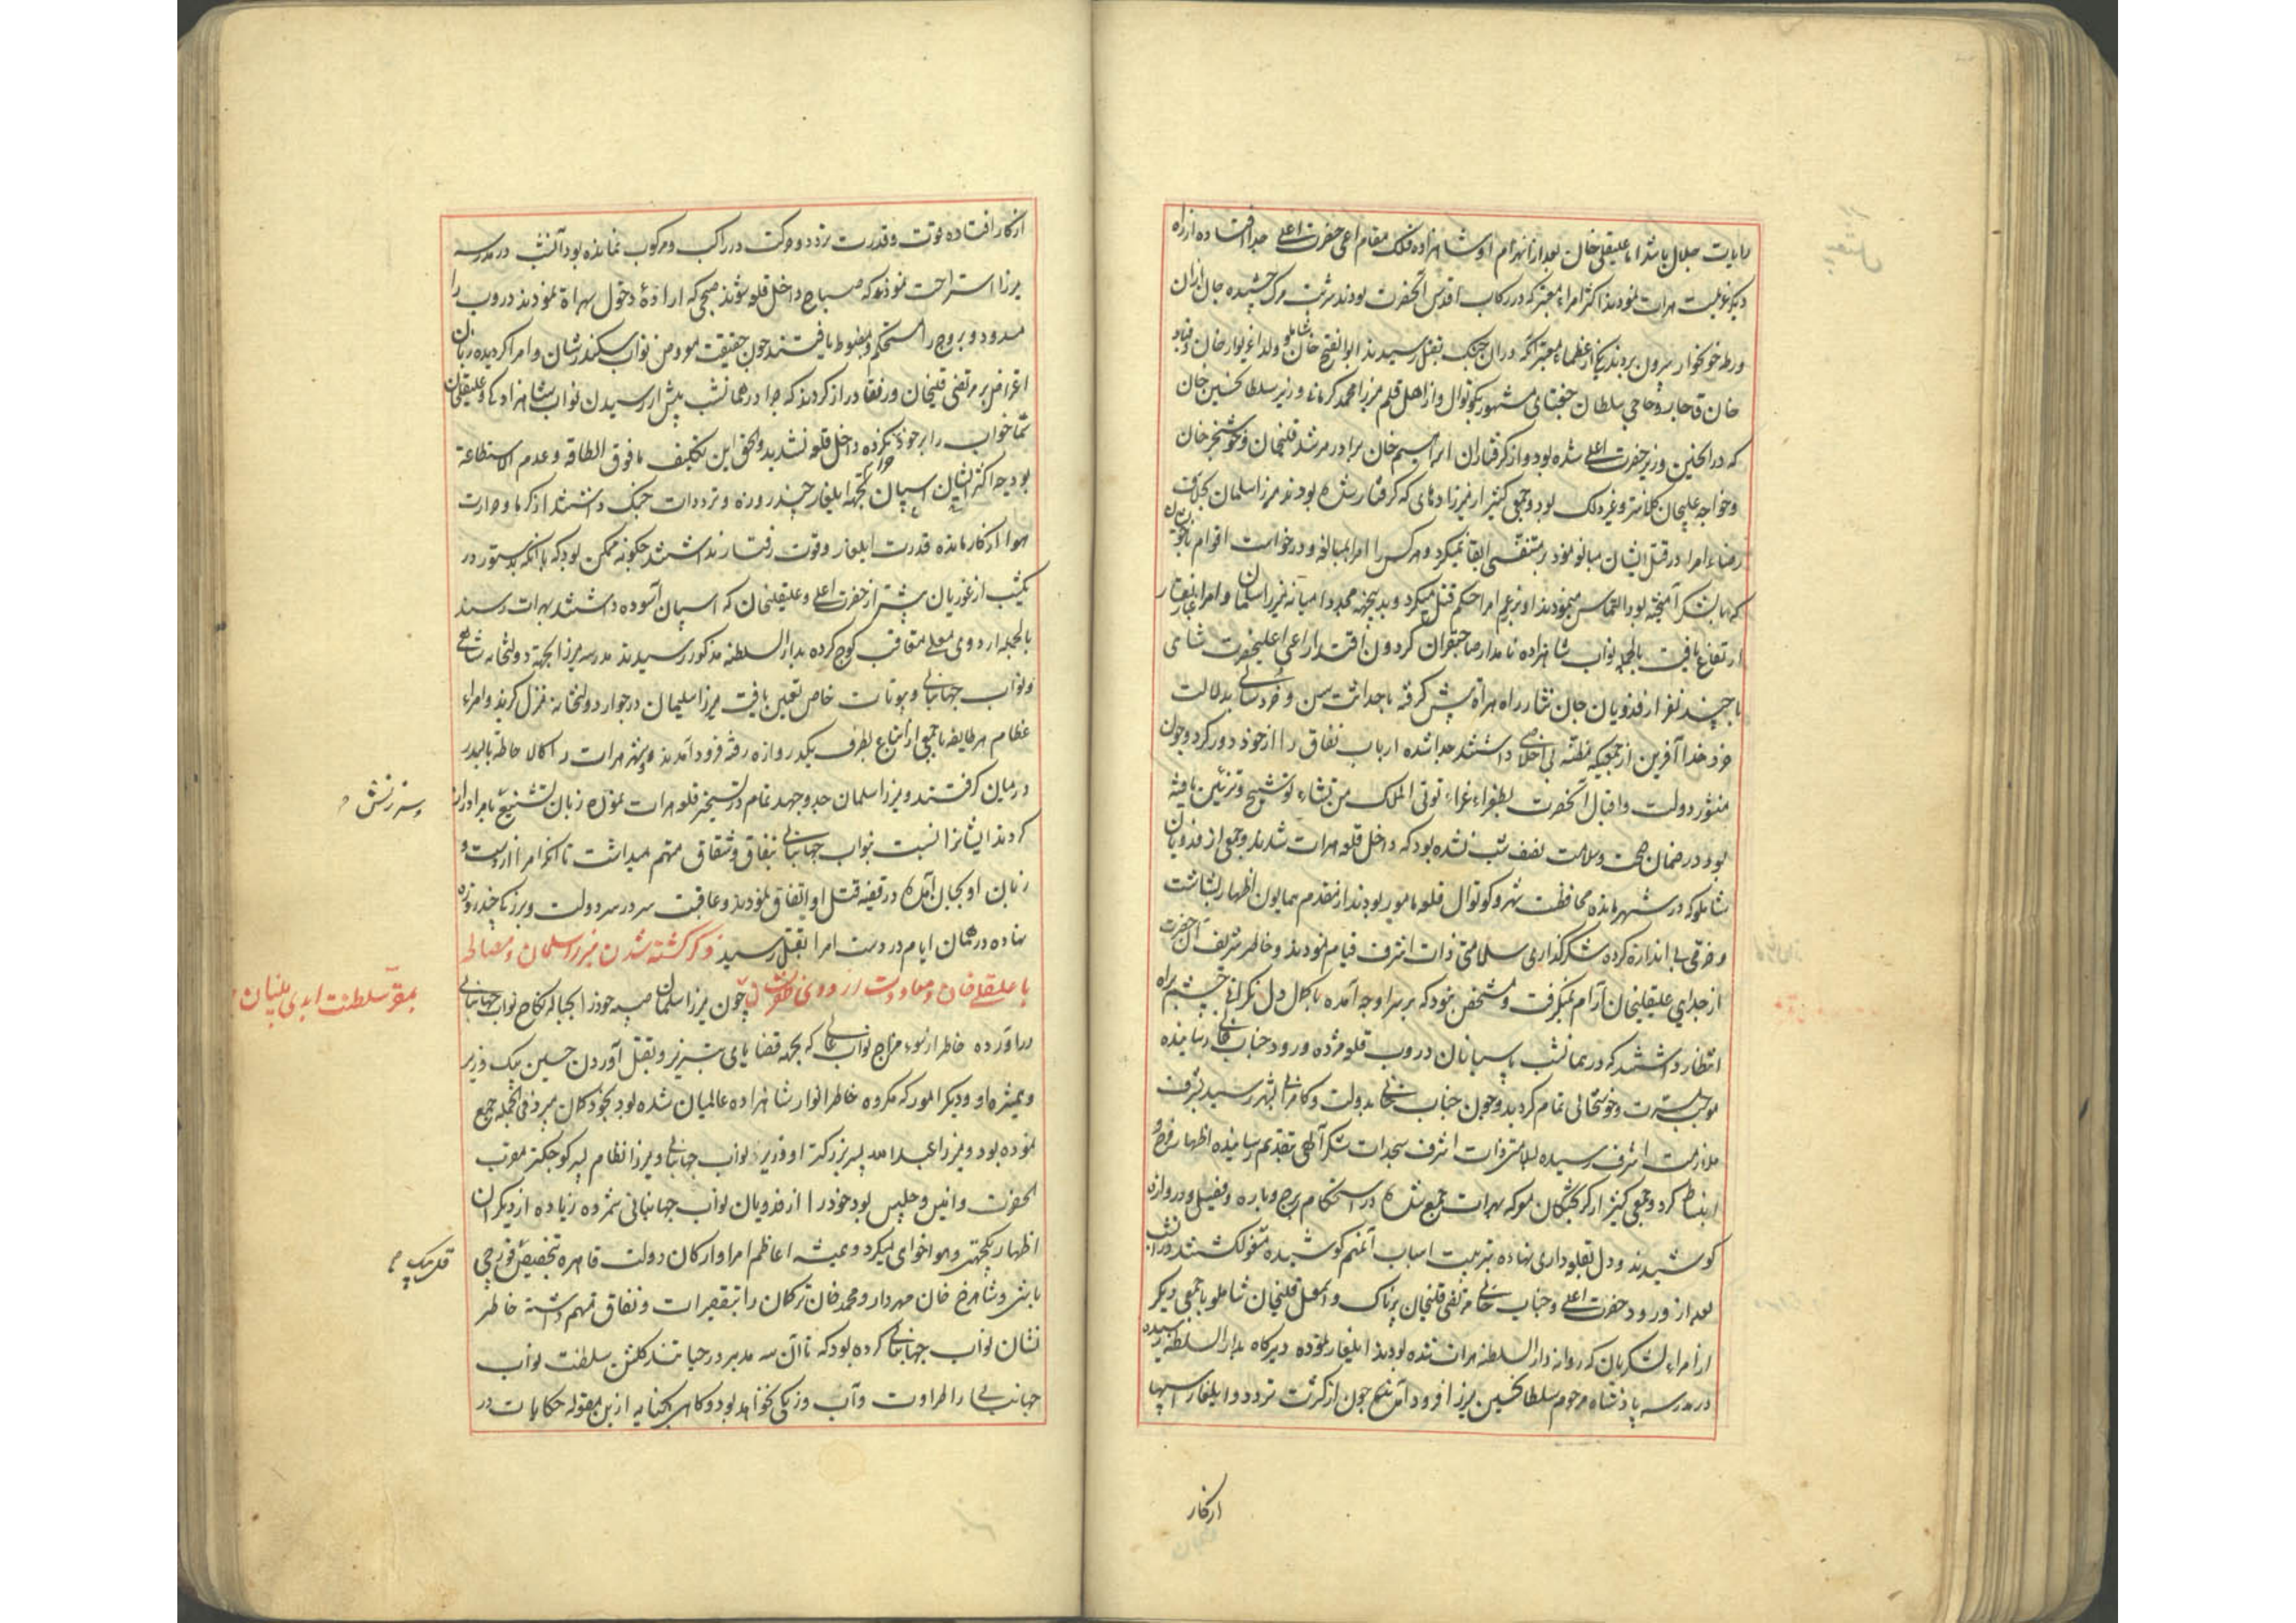 رایات جلال باشد اما علیقلی خان بعد از انهزام او شاهزاده فلک مقام اعنی حضرت اعلی جدا افتاده از راه
دیگر عزیمت هرات نمودند اکثر امراء معتبر که در رکاب اقدس آنحضرت بودند شربت مرگ چشیده جان ازان
ورطه خونخوار بیرون بردند یکی از عظماء معتبر که دران جنک بقتل رسیدند ابوالفتح خان شاملو ولد اغزیوار خان و قباد
خان قاجار و حاجی سلطان جغتائی مشهور بکوتوال و از اهل قلم میرزا محمد کرمانی وزیر سلطان حسین خان
که در انحین وزیر حضرت اعلی شده بود و از گرفتاران ابراهیم خان برادر مرشد قلیخان و خوشخبر خان
و خواجه علیجان کلانتر و غیر ذلک بود و جمعی کثیر از میرزاده‌های که گرفتار شده بودند میرزا سلمان بخلاف
رضاء امرا در قتل ایشان مبالغه نمود بر متنفسی ابقا نمیکرد و هر کس را امرا بمبالغه و درخواست اقوام
که با لشکر آمیخته بود التماس مینمودند او برغم امرا حکم قتل میکرد و بدینجهة مجددا میانه میرزا سلمان و امرا غبار نقار
ارتفاع یافت بالجمله نواب شاهزاده نامدار صاحبقران گردون اقتدار اعنی اعلیحضرت شاهی
با چند نفر از فدویان جان نثار راه هراة پیش گرفته با حداثت سن و خردسالی بدلالت
خرد خدا آفرین از جمعی که مظنه بی اخلاصی داشتند جدا شده ارباب نفاق را از خود دور کرد و چون
منشور دولت و اقبال آنحضرت بطغراء غراء توتی الملک من تشاء توشیح و تزئین یافته
بود در ضمان صحت و سلامت نصف شب نشده بود که داخل قلعه هرات شدند و جمعی از فدویان
شاملو که در شهر مانده محافظت شهر و کوتوال قلعه مامور بودند از مقدم همایون اظهار بشاشت
و خرمی بی اندازه کرده شکرگذاری سلامتی ذات اشرف قیام نمودند و خاطر شریف آن حضرت
از جدایی علیقلیخان آرام نمیگرفت و مشخص نبود که بر سر او چه آمده با کلال دل نگرانی چشم براه
انتظار داشتند که در همانشب پاسبانان دروب قلعه مژده ورود جناب خانی رسانیده
موجب مسرت و خوشحالی تمام گردید و چون جناب خانی بدولت و کامرانی بشهر رسید بشرف
ملازمت اشرف رسیده بسلامتی ذات اشرف سجدات شکر آلهی بتقدیم رسانیده اظهار فرح و
انبساط کرد و جمعی کثیر از گریختگان معرکه بهرات جمع شده در استحکام برج و باره و فصیل و دروازه
کوشیدند و دل بقلعه داری نهاده بترتیب اسباب آنمهم کوشیده مشغول گشتند در انشب
بعد از ورود حضرت اعلی و جناب خانی مرتضی قلیخان پرناک و اسمعیل قلیخان شاملو با جمعی دیگر
از امراء لشکریان که روانه دار السلطنه هرات شده بودند ایلغار نموده دیرگاه بدار السلطنه رسیده
در مدرسه پادشاه مرحوم سلطان حسین میرزا فرود آمدند چون از کثرت تردد و ایلغار اسپها
از کار
از کار افتاده قوت و قدرت تردد و حرکت در راکب و مرکوب نمانده بود آنشب در مدرسه
میرزا استراحت نمودند که صباح داخل قلعه شوند صبحی که ارادهٔ دخول هراة نمودند دروب را
مسدود و بروج را مستحکم و مضبوط یافتند چون حقیقت معروض نواب سکندر شان و امرا گردیده زبان
اعتراض بر مرتضی قلیخان و رفقا دراز کردند که چرا در همانشب پیش از رسیدن نواب شاهزاده و علیقلیخان
شما خواب را بر خود کرده داخل قلعه نشدید و الحق این تکلیف ما فوق الطاقه و عدم الاستطاعة
بود چه اکثر ایشان اسپان بجهة ایلغار چند روزه و ترددات جنک داشتند از گرما و حرارت
هوا از کار مانده قدرت ایلغار و قوت رفتار نداشتند چگونه ممکن بود که با آنکه بدستور در
یکشب از غوریان پیشتر از حضرت اعلی و علیقلیخان که اسپان آسوده داشتند بهرات رسند
بالجمله اردوی معلی متعاقب کوچ کرده بدار السلطنه مذکور رسیدند مدرسه میرزا بجهة دولتخانه شاهی
و نواب جهانبانی و بیوتات خاص تعیین یافت میرزا سلیمان در جوار دولتخانه منزل گزید و امراء
عظام هر طایفه با جمعی از اتباع بطرف یکدروازه رفته فرود آمدند و شهر هرات را کالاحاطة بالبدر
در میان گرفتند و میرزا سلمان جد و جهد تمام در تسخیر قلعه هرات نموده زبان تشنیع بامرا دراز
و سرزنش
کردند ایشانرا نسبت بنواب جهانبانی بنفاق و شقاق متهم میداشت تا آنکه امرا از دست و
زبان او بجان آمده در قضیه قتل او اتفاق نمودند و عاقبت سر در سر دولت و بزرگی چند روزه
نهاده در همان ایام در دست امرا بقتل رسید ذکر کشته شدن میرزا سلمان و مصالحه
با علیقلی خان و معاودت اردوی ظفرنشان چون میرزا سلمان صبیه خود را بحباله نکاح نواب جهانبانی
بمقر سلطنت ابدی بنیان
درآورده خاطر از سوء مزاج نواب عالی که بجهة قضایای تبریز و بقتل آوردن حسین بیک وزیر
و همشیره او و دیگر امور که مکروه خاطر انوار شاهزاده عالمیان شده بود بخود گمان میبرد فی الجمله جمع
نموده بود و میرزا عبدالله پسر بزرگتر او وزیر نواب جهانبانی و میرزا نظام پسر کوچکتر مقرب
الحضرت و انیس و جلیس بود خود را از فدویان نواب جهانبانی شمرده زیاده از دیگران
اظهار یکجهتی و هواخواهی میکرد و همیشه اعاظم امرا و ارکان دولت قاهره بتخصیص قورچی
قلی بیک
باشی و شاهرخ خان مهردار و محمد خان ترکمان را بتقصیرات و نفاق متهم داشته خاطر
نشان نواب جهانبانی کرده بود که تا آن سه مدبر در حیاتند گلشن سلطنت نواب
جهانبانی را طراوت و آب و رنگی نخواهد بود و گاهی بکنایه ازین مقوله حکایات در